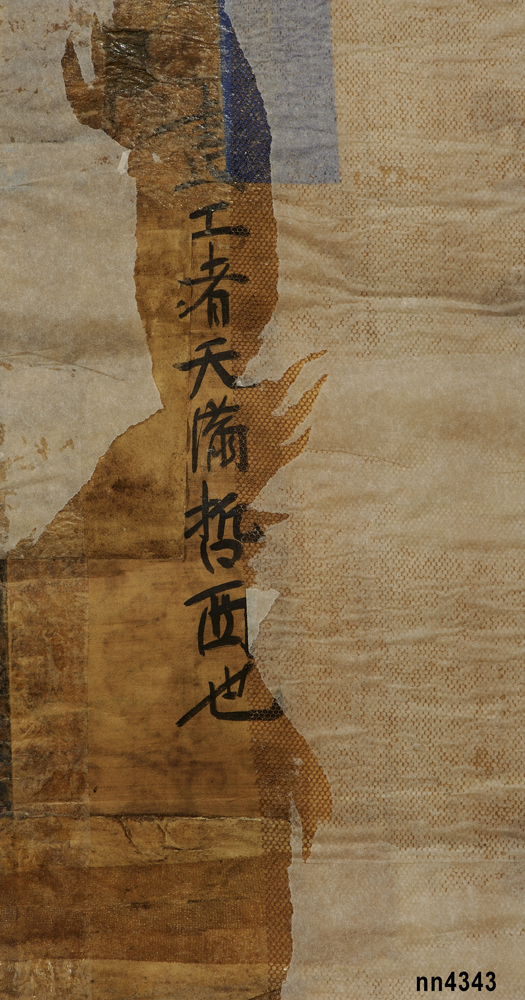 工者天滿哲西也
nn4343